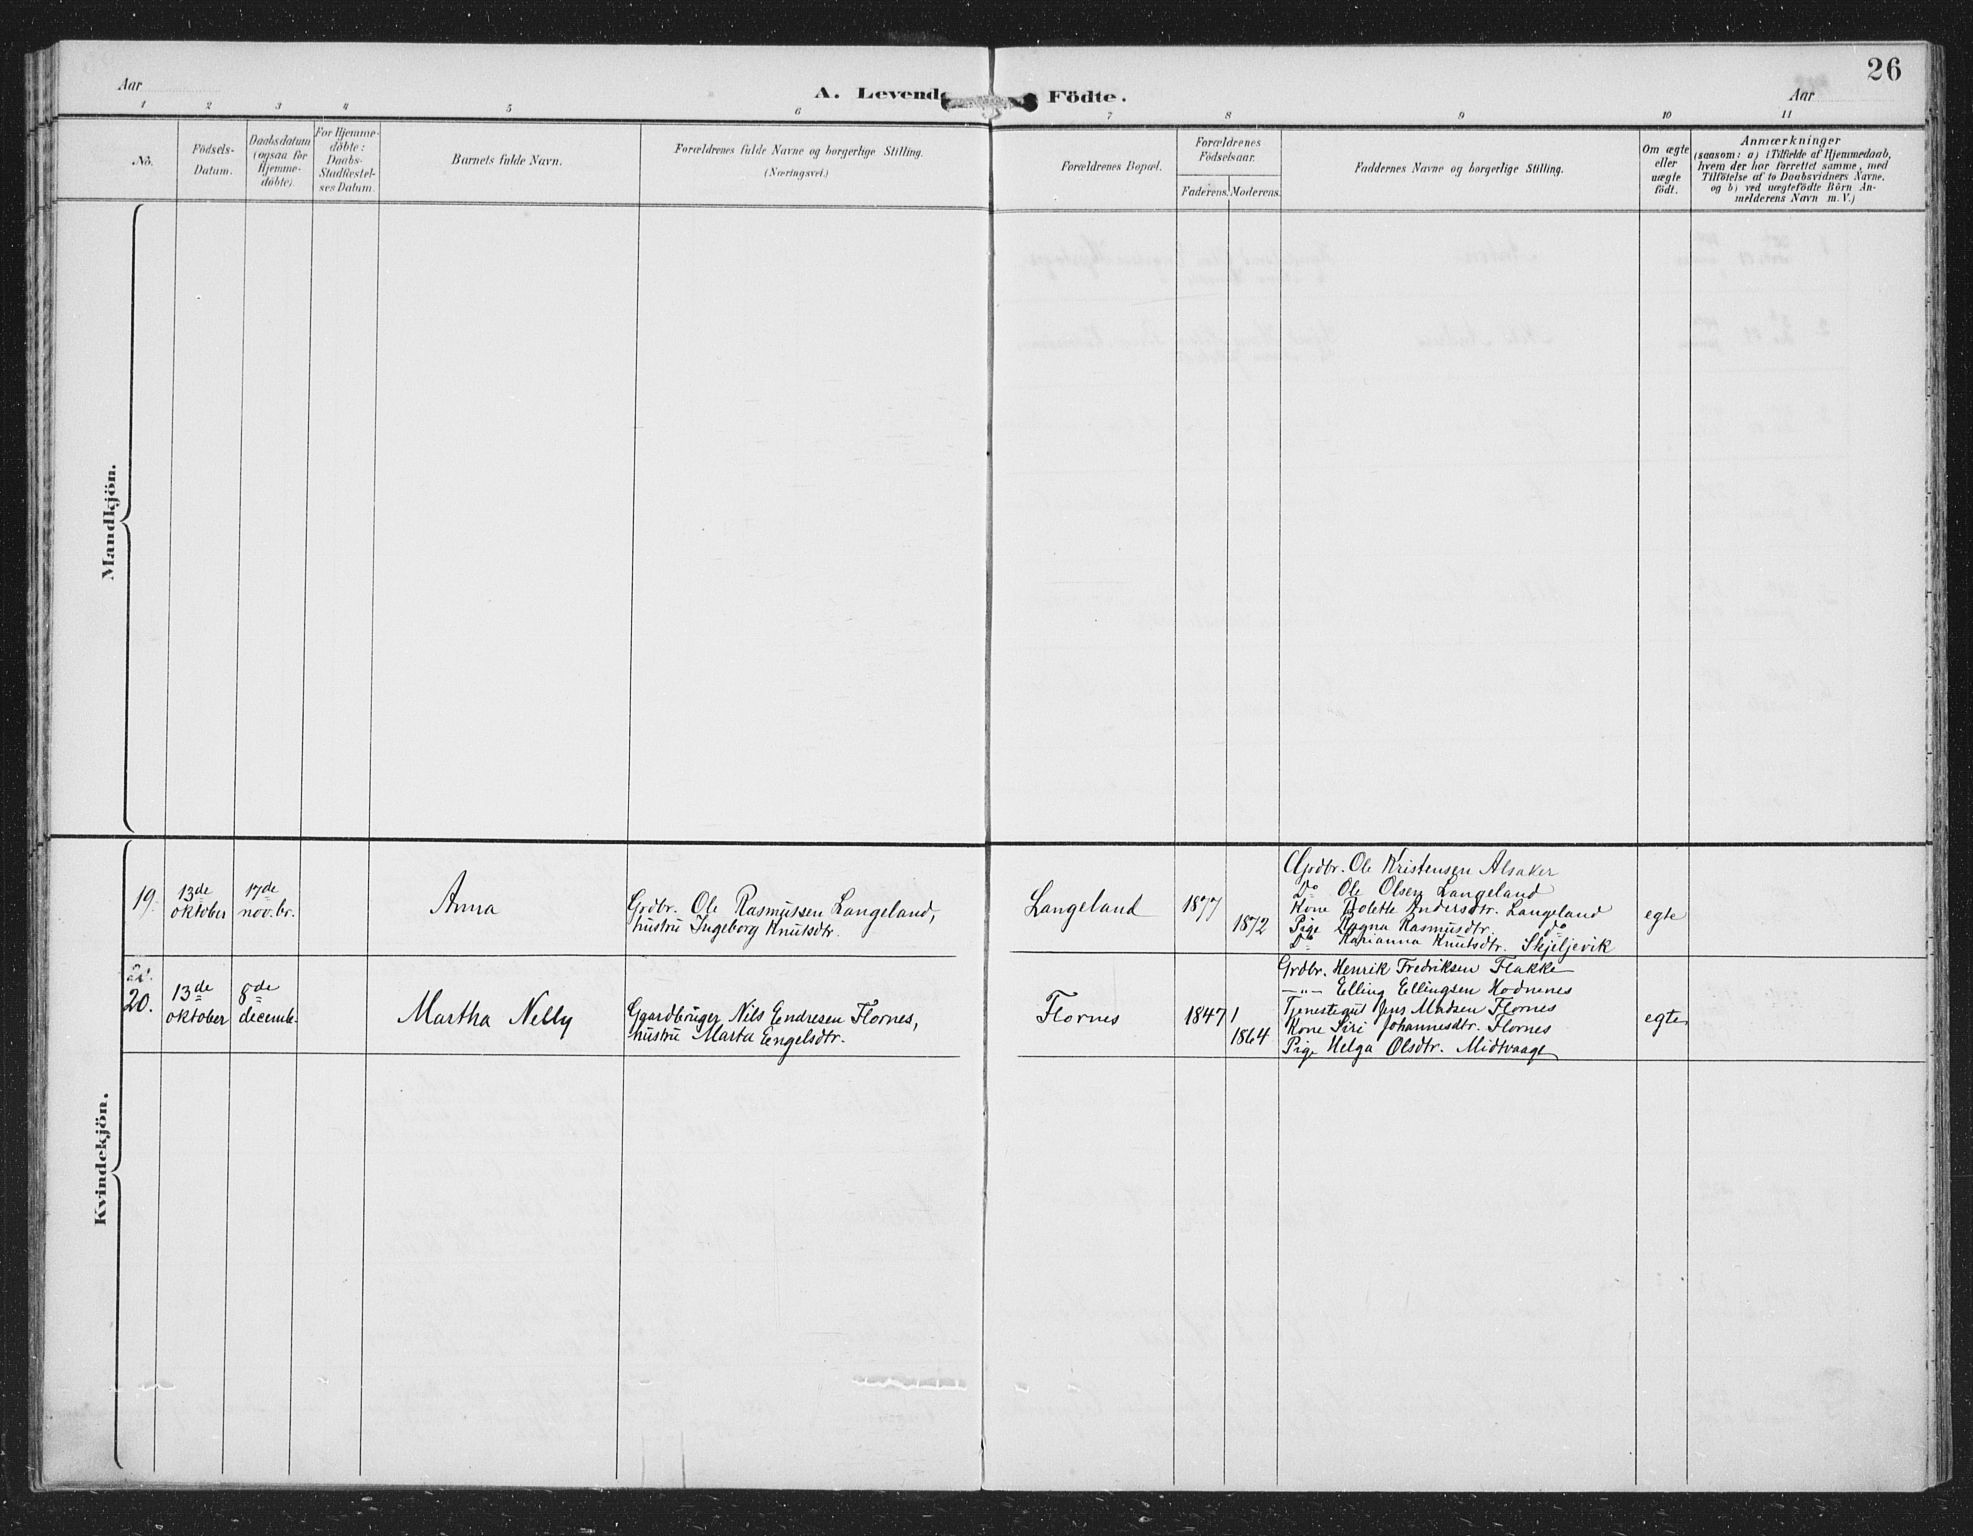 26
Aar
A. Levende Födte.
Aar
1 2 3 4 5 6 7 8 9 10 11
No.
Födsels-
Datum.
Daabsdatum
(ogsaa for
Hjemme-
döbte).
For Hjemme-
döbte:
Daabs-
Stadfestel-
ses Datum.
Barnets fulde Navn.
Forældrenes fulde Navne og borgerlige Stilling.
(Næringsvei.)
Forældrenes Bopæl.
Forældrenes
Födselsaar.
Faderens. Moderens.
Faddernes Navne og borgerlige Stilling.
Om ægte
eller
uægte
födt.
Anmærkninger
(saasom: a) i Tilfælde af Hjemmedaab,
hvem der har forrettet samme, med
Tilföielse af to Daabsvidners Navne,
og b) ved uægtefödte Börn An-
melderens Navn m. V.)
Mandkjön.
Kvindekjön.
19.
13de
oktober
17de
nov.br.
Anna
Grdbr. Ole Rasmussen Langeland,
hustru Ingeborg Knutsdtr.
Langeland
1877
1872
Grdbr. Ole Kristensen Alsaker
Do Ole Olsen Langeland
Kone Bolette Andersdtr. Langeland
Pige Ragna Rasmusdtr. do
Do Karianna Knutsdtr. Skjeljevik
egte
20.
13de
oktober
8de
decemb.
Martha Nelly
Gaardbruger Nils Endresen Flornes,
hustru Marta Engelsdtr.
Flornes
1847
1864
Grdbr. Henrik Fredriksen Flakke
—"— Elling Ellingsen Hodnenes
Tjenestegut Jens Madsen Flornes
Kone Siri Johannesdtr. Flornes
Pige Helga Olsdtr. Midtvaage
egte